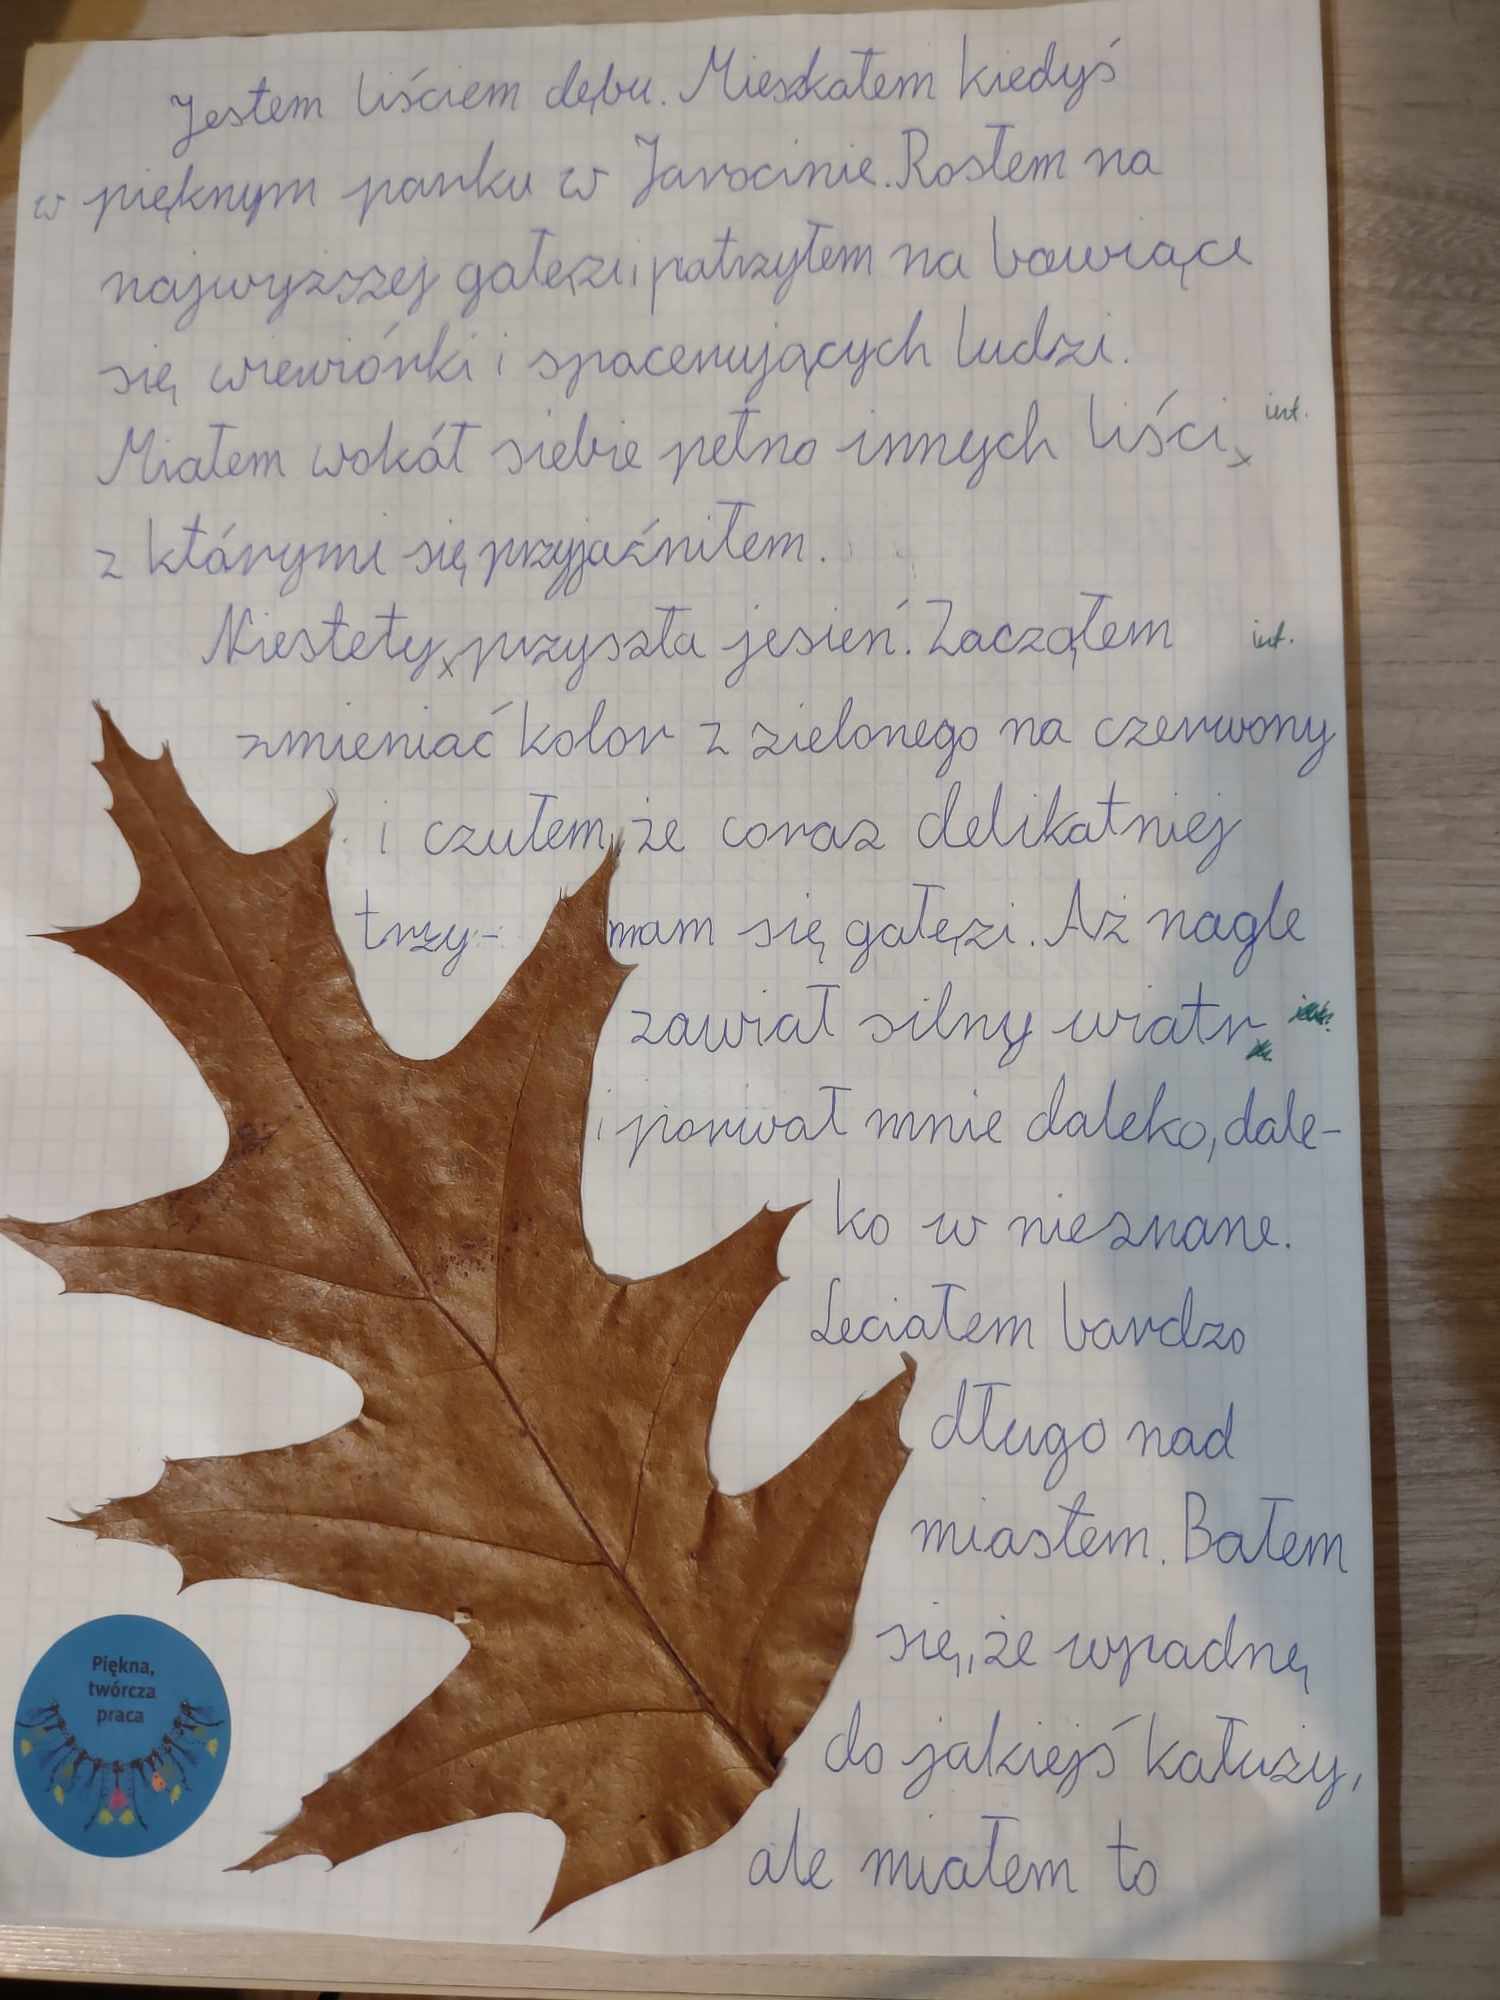 Jestem liściem dębu. Mieszkałem kiedyś
w pięknym parku w Jarocinie. Rosłem na
najwyższej gałęzi, patrzyłem na bawiące
się wiewiórki i spacerujących ludzi.
Miałem wokół siebie pełno innych liści, int.
z którymi się przyjaźniłem.
Niestety, przyszła jesień. Zacząłem int.
zmieniać kolor z zielonego na czerwony
i czułem, że coraz delikatniej
trzy- mam się gałęzi. Aż nagle
zawiał silny wiatr
i porwał mnie daleko, dale-
ko w nieznane.
Leciałem bardzo
długo nad
miastem. Bałem
się, że wpadnę
do jakiejś kałuży,
ale miałem to
Piękna,
twórcza
praca